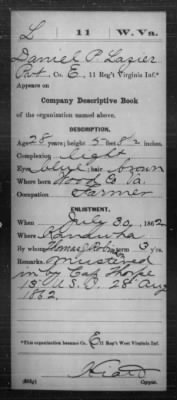 L | 11 | W. Va.
Daniel P. Lazier
Pvt., Co. E, 11 Reg't Virginia Inf.*
Appears on
Company Descriptive Book
of the organization named above.
DESCRIPTION.
Age 28 years; height 5 feet 8½ inches.
Complexion light
Eyes blue; hair brown
Where born Wood Co Va.
Occupation Farmer
ENLISTMENT.
When July 30, 1862
Where Kanawha
By whom Thomas; term 3 y'rs.
Remarks: Mustered
in by Cap Thorpe
15" U.S.I. 28 Aug
1862.
*This organization became Co. E, 11 Reg't West Virginia Inf.
Hiatt
Copyist.